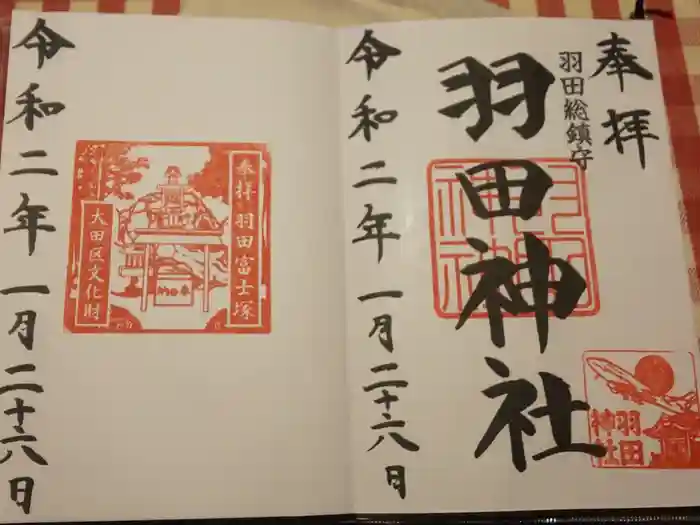 奉拝
羽田総鎮守
羽田神社
羽田
神社
令和二年一月二十六日
奉拝 羽田富士塚
大田区文化財
奉納
令和二年一月二十六日